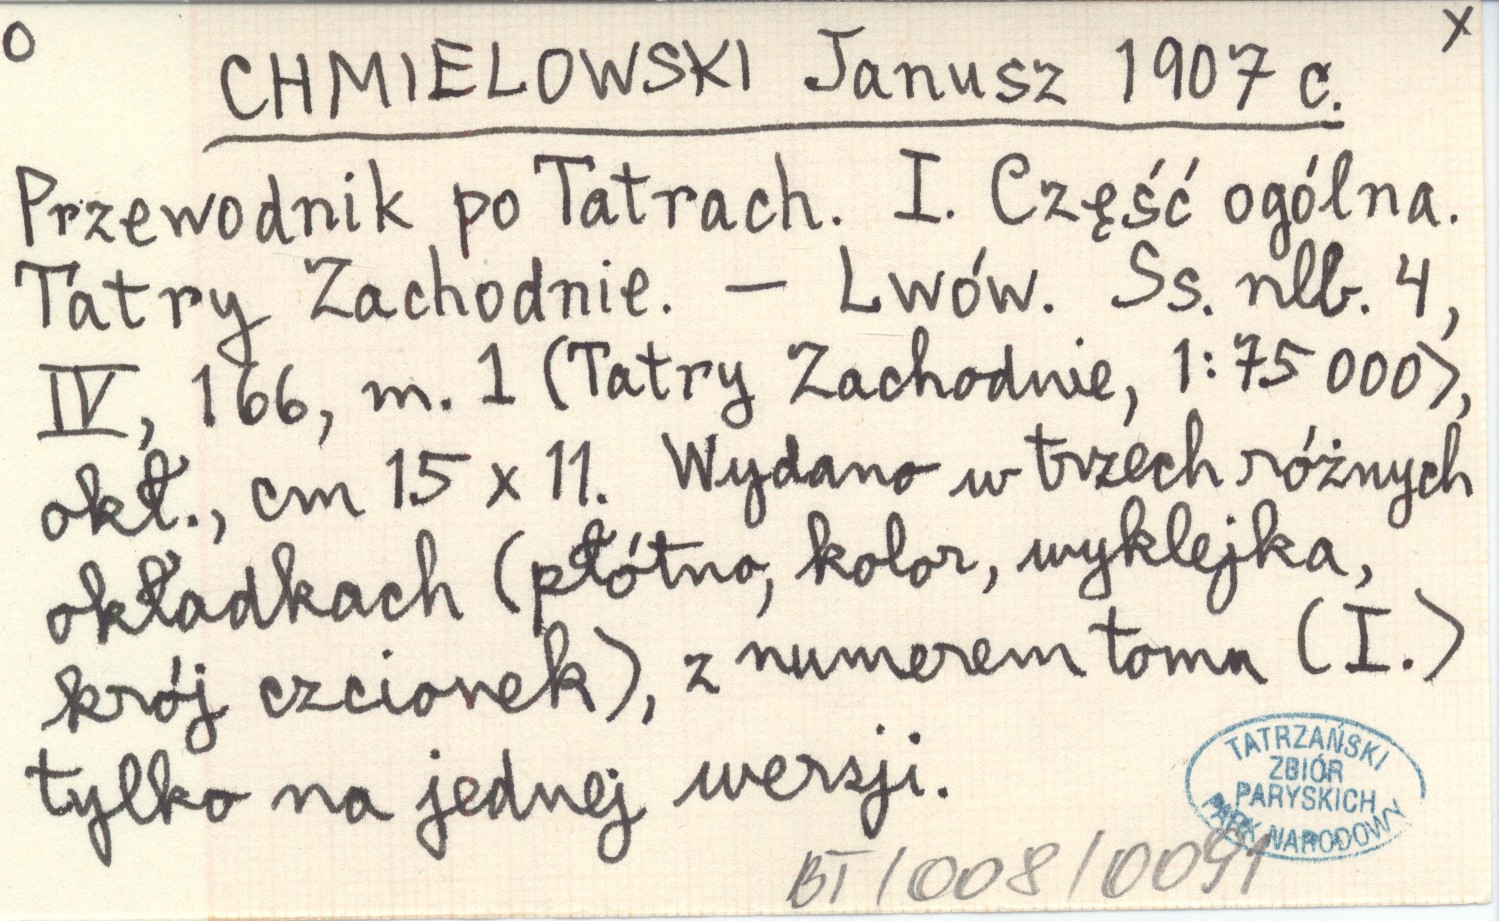 O
X
CHMIELOWSKI Janusz 1907 c.
Przewodnik po Tatrach. I. Część ogólna.
Tatry Zachodnie. – Lwów. Ss. nlb. 4,
IV, 166, m. 1 (Tatry Zachodnie, 1:75 000),
okł., cm 15 x 11. Wydano w trzech różnych
okładkach (płótno, kolor, wyklejka,
krój czcionek), z numerem tomu (I.)
tylko na jednej wersji.
TATRZAŃSKI
ZBIÓR
PARYSKICH
PARK NARODOWY
BT/008/0091